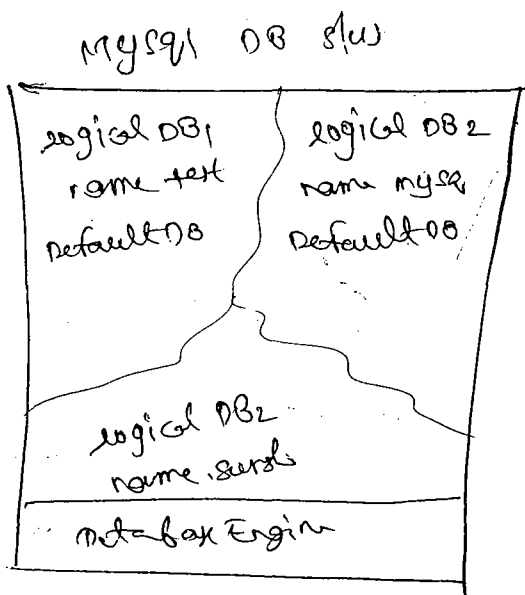 MySQL DB s/w
logical DB1
name test
Default DB
logical DB2
name mysql
Default DB
logical DB2
name
Database Engine